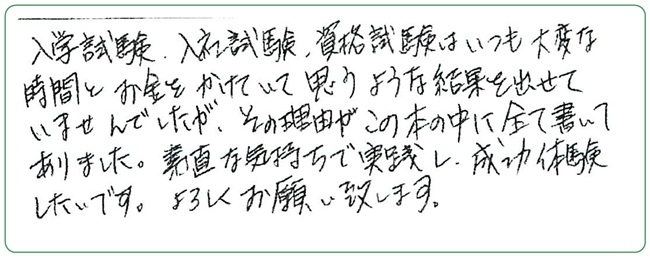 入学試験、入社試験、資格試験はいつも大変な
時間とお金をかけていて思うような結果を出せて
いませんでしたが、その理由がこの本の中に全て書いて
ありました。素直な気持ちで実践し、成功体験
したいです。よろしくお願い致します。